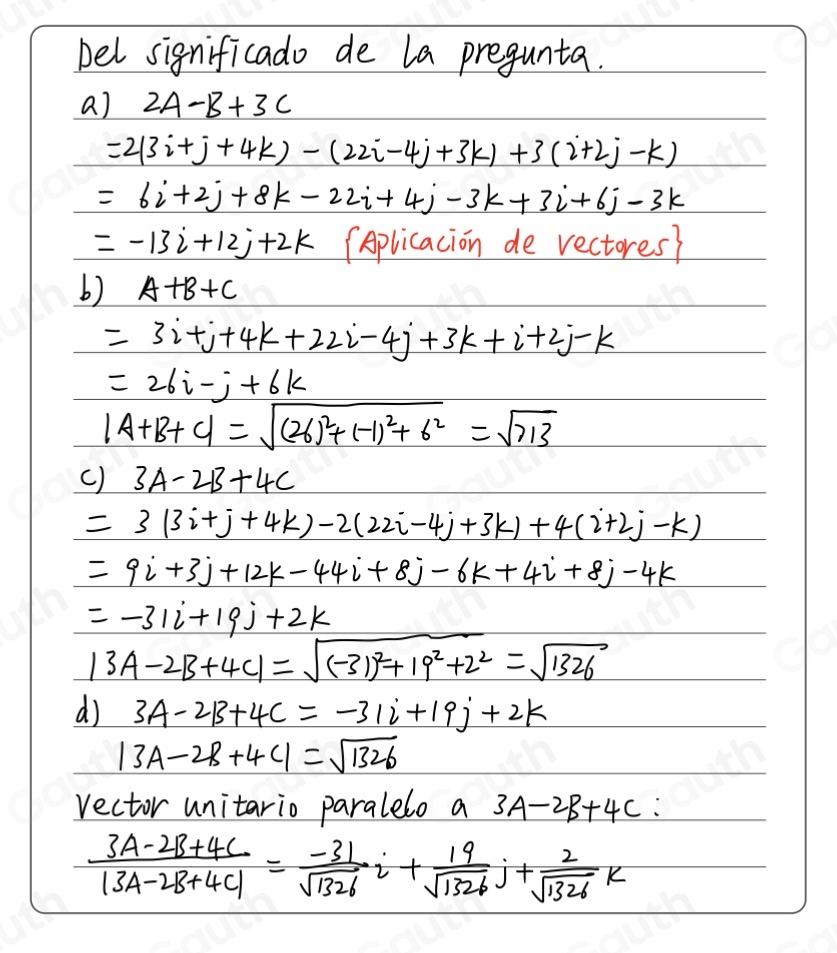 Del significado de la pregunta.
a) 2A-B+3C
=2(3i+j+4k)-(22i-4j+3k)+3(i+2j-k)
= 6i+2j+8k-22i+4j-3k+3i+6j-3k
= -13i+12j+2k {Aplicación de vectores}
b) A+B+C
= 3i+j+4k+22i-4j+3k+i+2j-k
= 26i-j+6k
|A+B+C| = √((26)²+(-1)²+6²) = √713
c) 3A-2B+4C
= 3(3i+j+4k)-2(22i-4j+3k)+4(i+2j-k)
= 9i+3j+12k-44i+8j-6k+4i+8j-4k
= -31i+19j+2k
|3A-2B+4C| = √((-31)²+19²+2²) = √1326
d) 3A-2B+4C = -31i+19j+2k
|3A-2B+4C| = √1326
Vector unitario paralelo a 3A-2B+4C:
(3A-2B+4C)/|3A-2B+4C| = -31/√1326 i + 19/√1326 j + 2/√1326 k